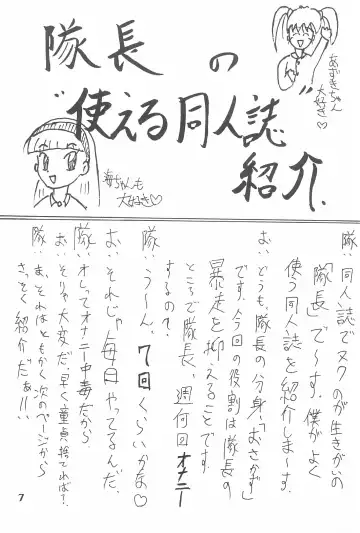 隊長の
"使える同人誌"
紹介
あずきちゃん
大好き♡
海ちゃんも
大好き♡
隊:同人誌でヌクのが生きがいの
「隊長」で〜す。僕がよく
使う同人誌を紹介しま〜す。
お:どうも、隊長の分身「おさかず」
です。今回の役割は隊長の
暴走を抑えることです。
ところで隊長、週何回オナニー
するの?
隊:う〜ん、7回くらいかな♡
お:それじゃ毎日やってるんだ。
隊:オレってオナニー中毒だから。
お:そりゃ大変だ。早く童貞捨てれば?
隊:ま、それはともかく次のページから
さっそく紹介だぁー!!
7